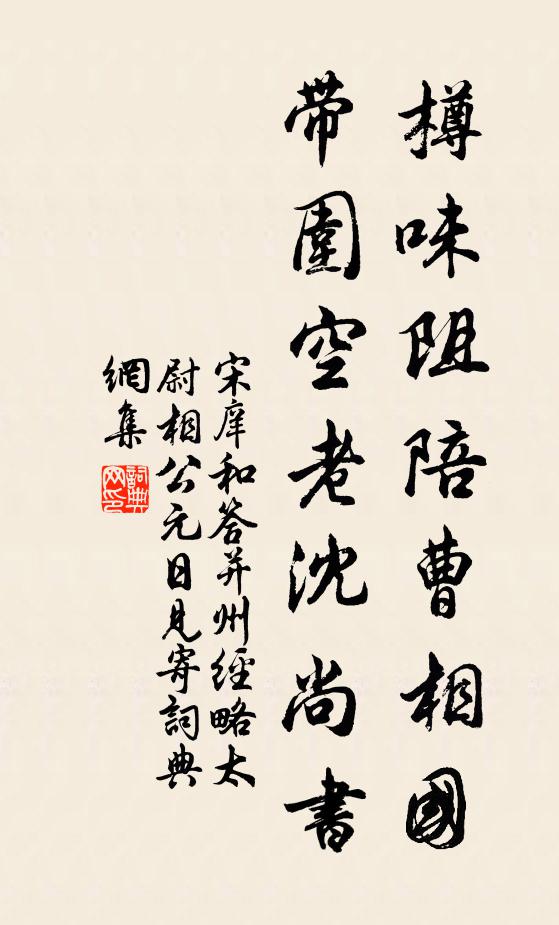 樽味阻陪曹相國
帶圍空老沈尚書
宋庠和答并州經略太
尉相公元日見寄詞典
網集
詞典
网印